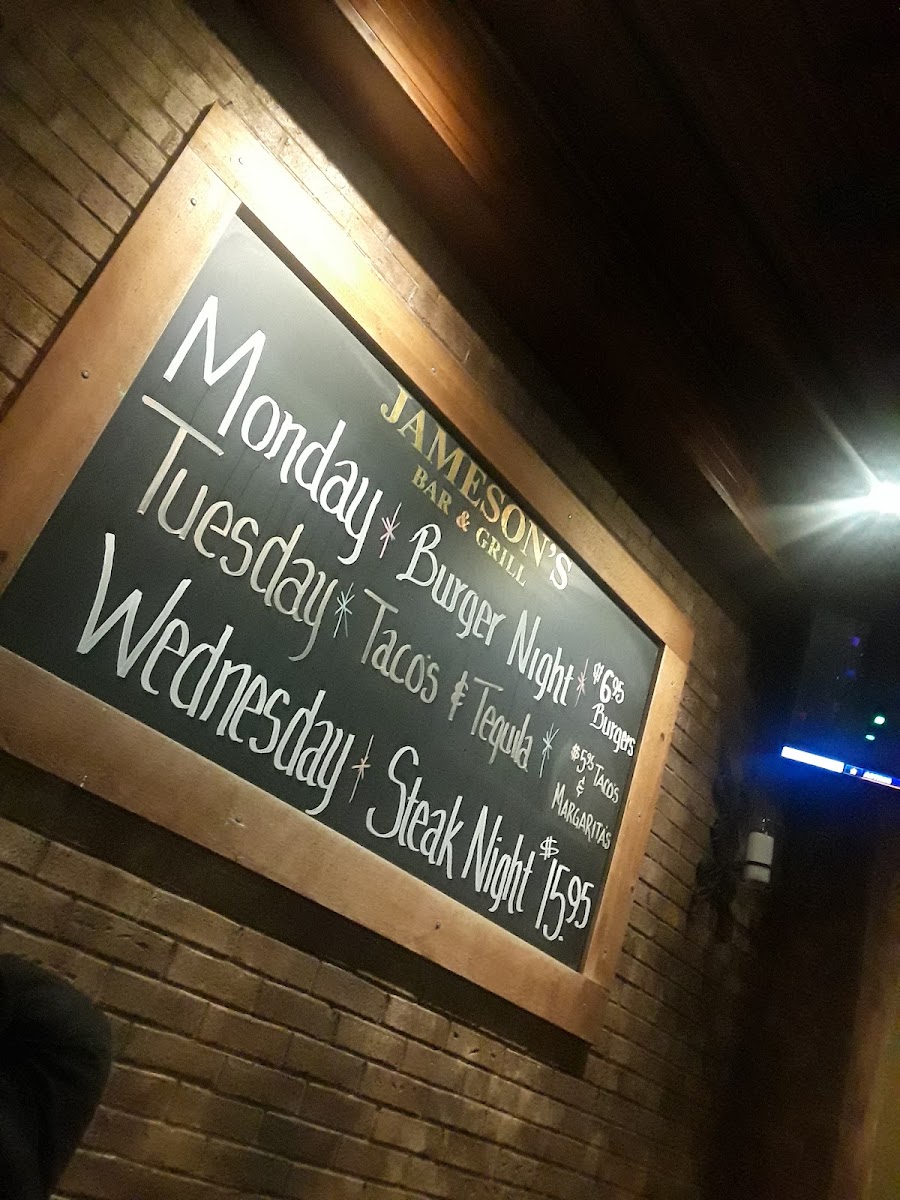 JAMESON'S
BAR & GRILL
Monday * Burger Night * $6.95 Burgers
Tuesday * Taco's & Tequila * $5.95 TACO'S & MARGARITA'S
Wednesday * Steak Night $15.95